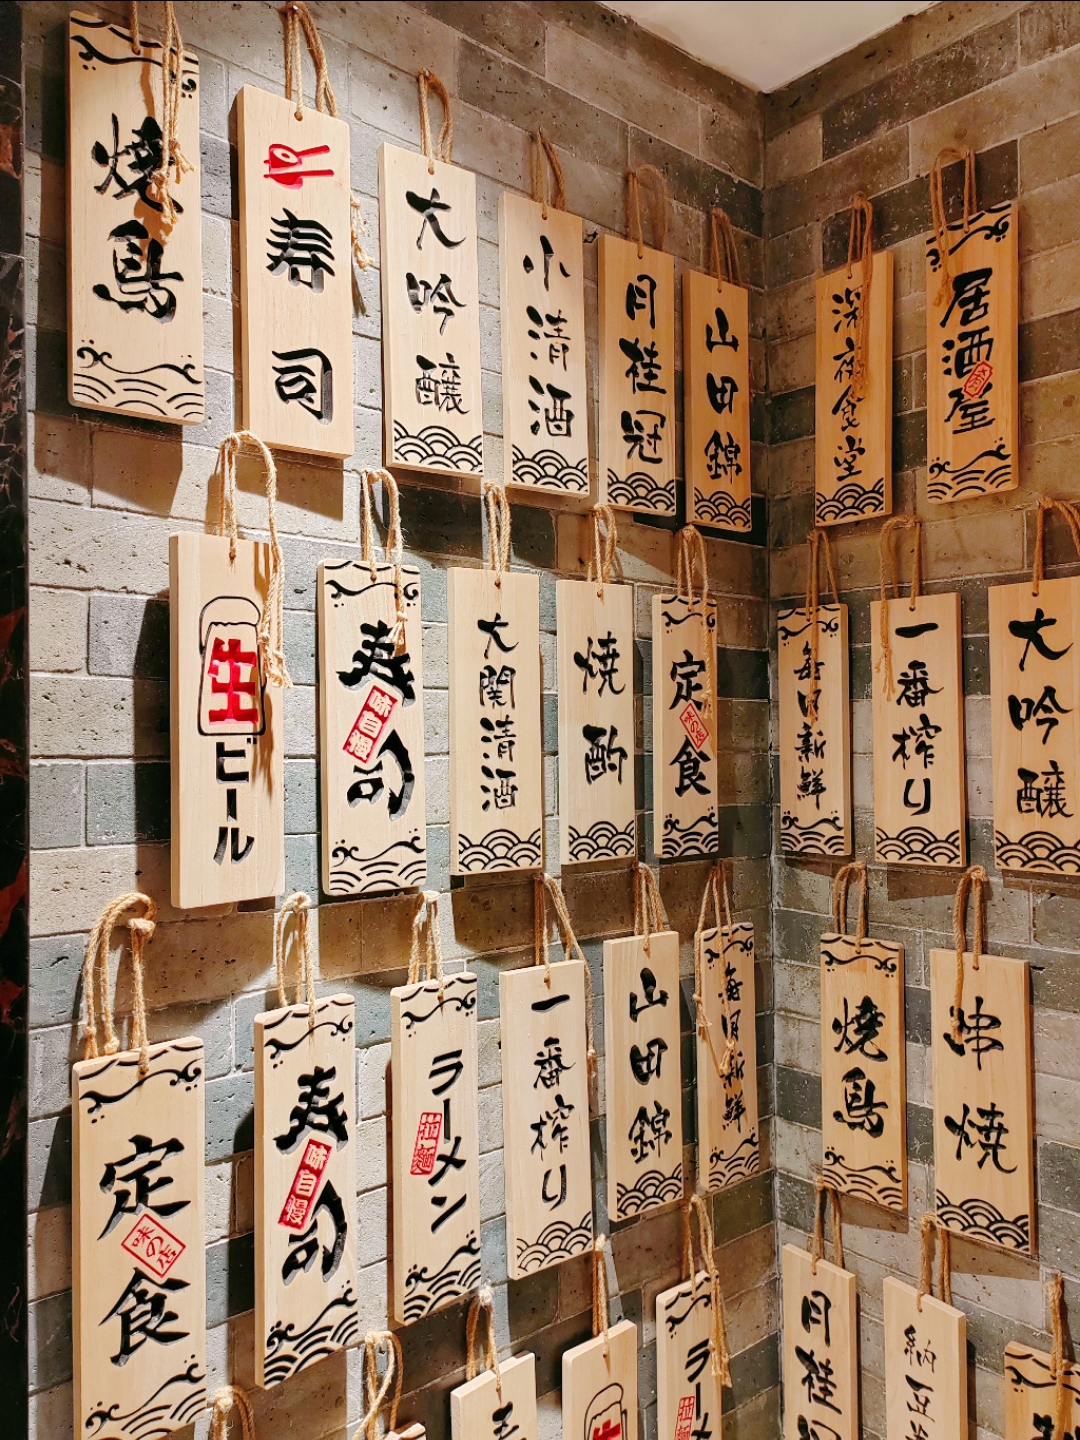 焼鳥
寿司
大吟醸
小清酒
月桂冠
山田錦
深夜食堂
居酒屋
生ビール
寿司
味自慢
大関清酒
焼酎
定食
味の店
毎日新鮮
一番搾り
大吟醸
定食
味の店
寿司
味自慢
ラーメン
拉麺
一番搾り
山田錦
毎日新鮮
焼鳥
串焼
生
ラーメ
月桂冠
納豆